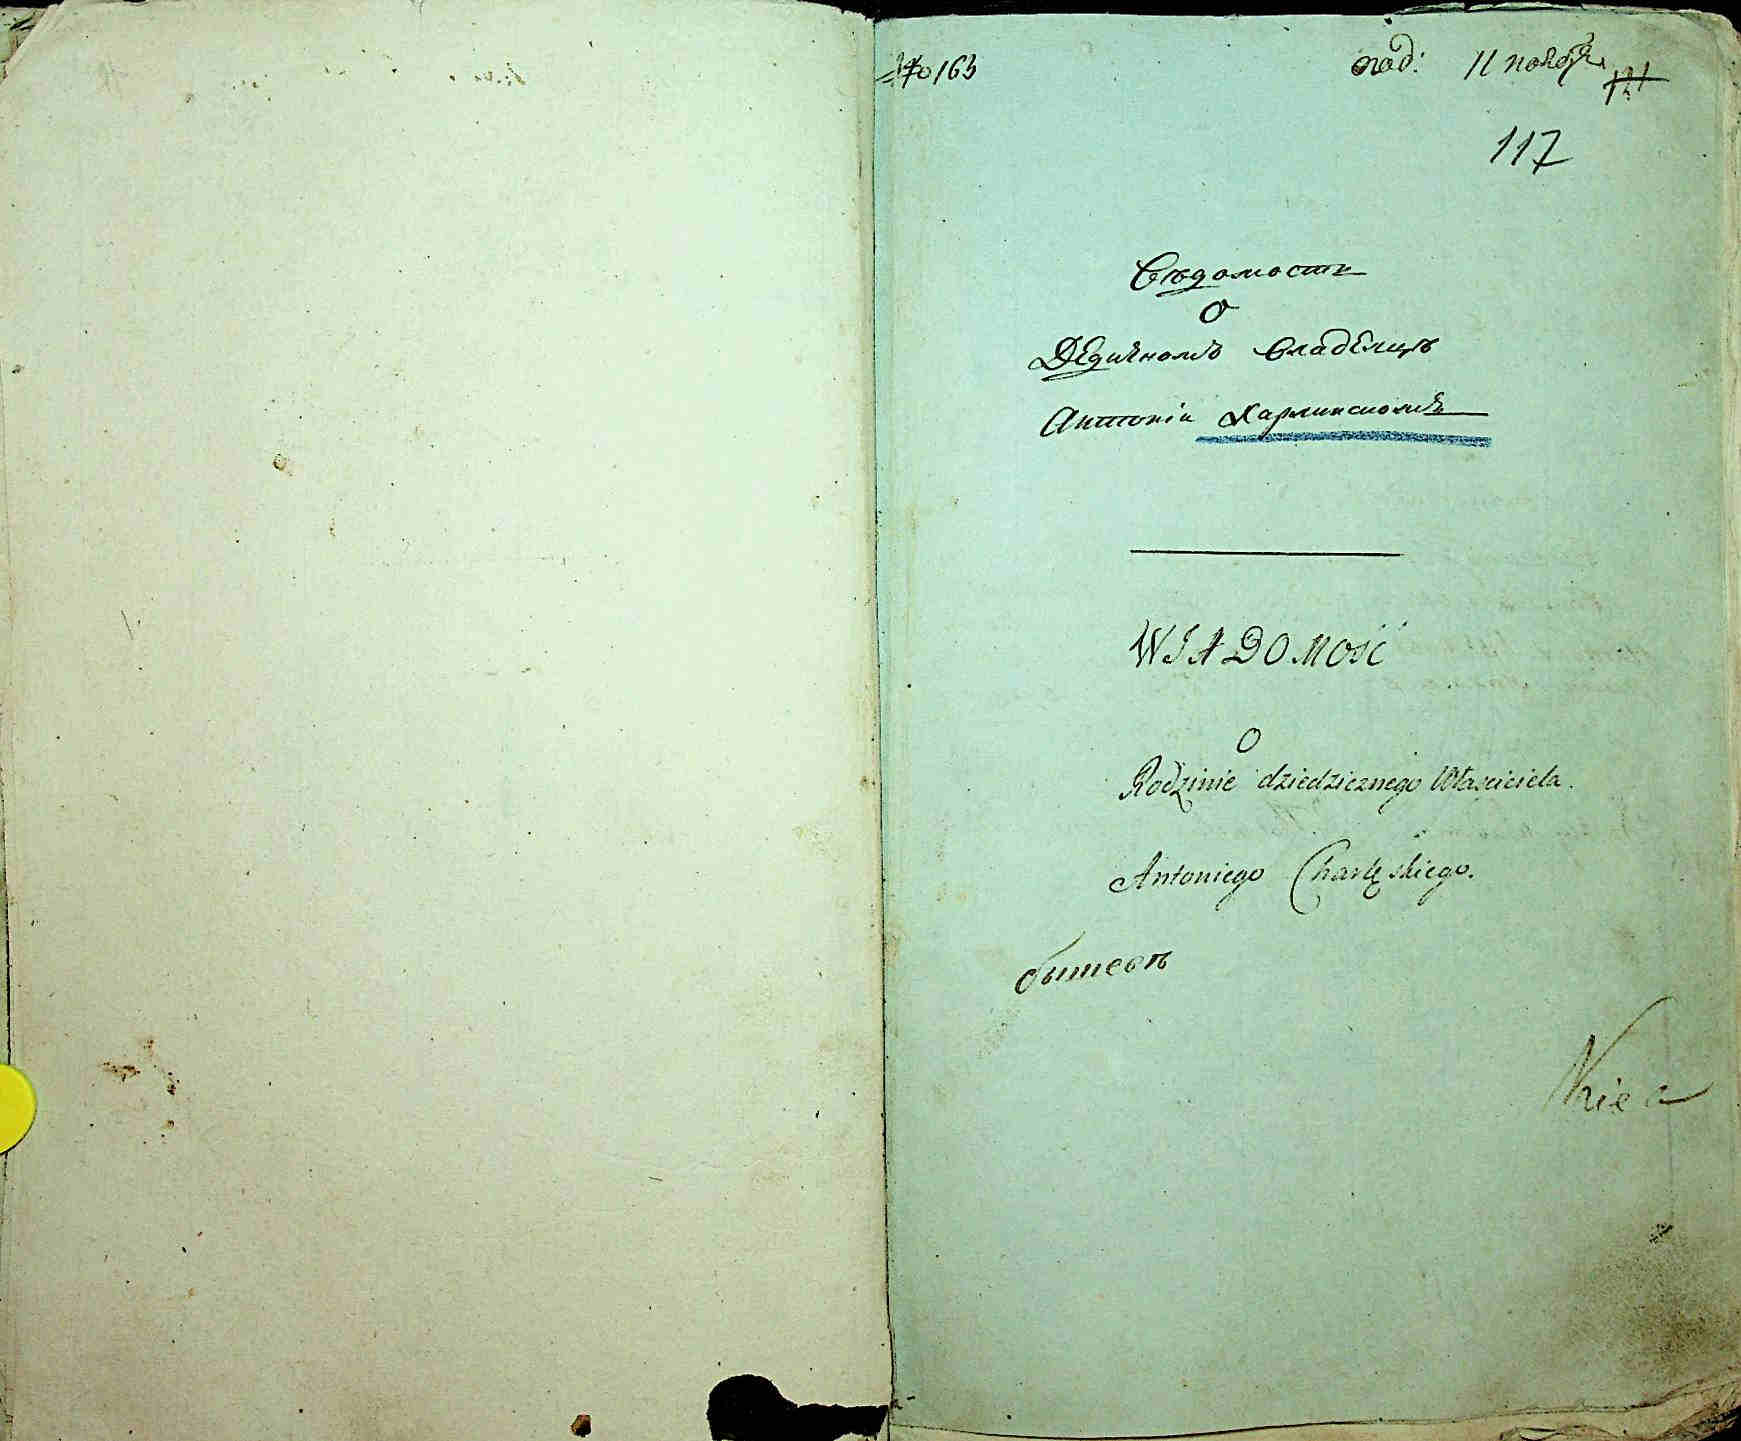 № 163
под: 11 ноября
117
Вѣдомость
О
Дедичномъ Владелцѣ
Антоніи Харлинскомъ
WIADOMOŚĆ
O
Rodzinie dziedzicznego Własciciela.
Antoniego Charlęskiego.
бытевъ